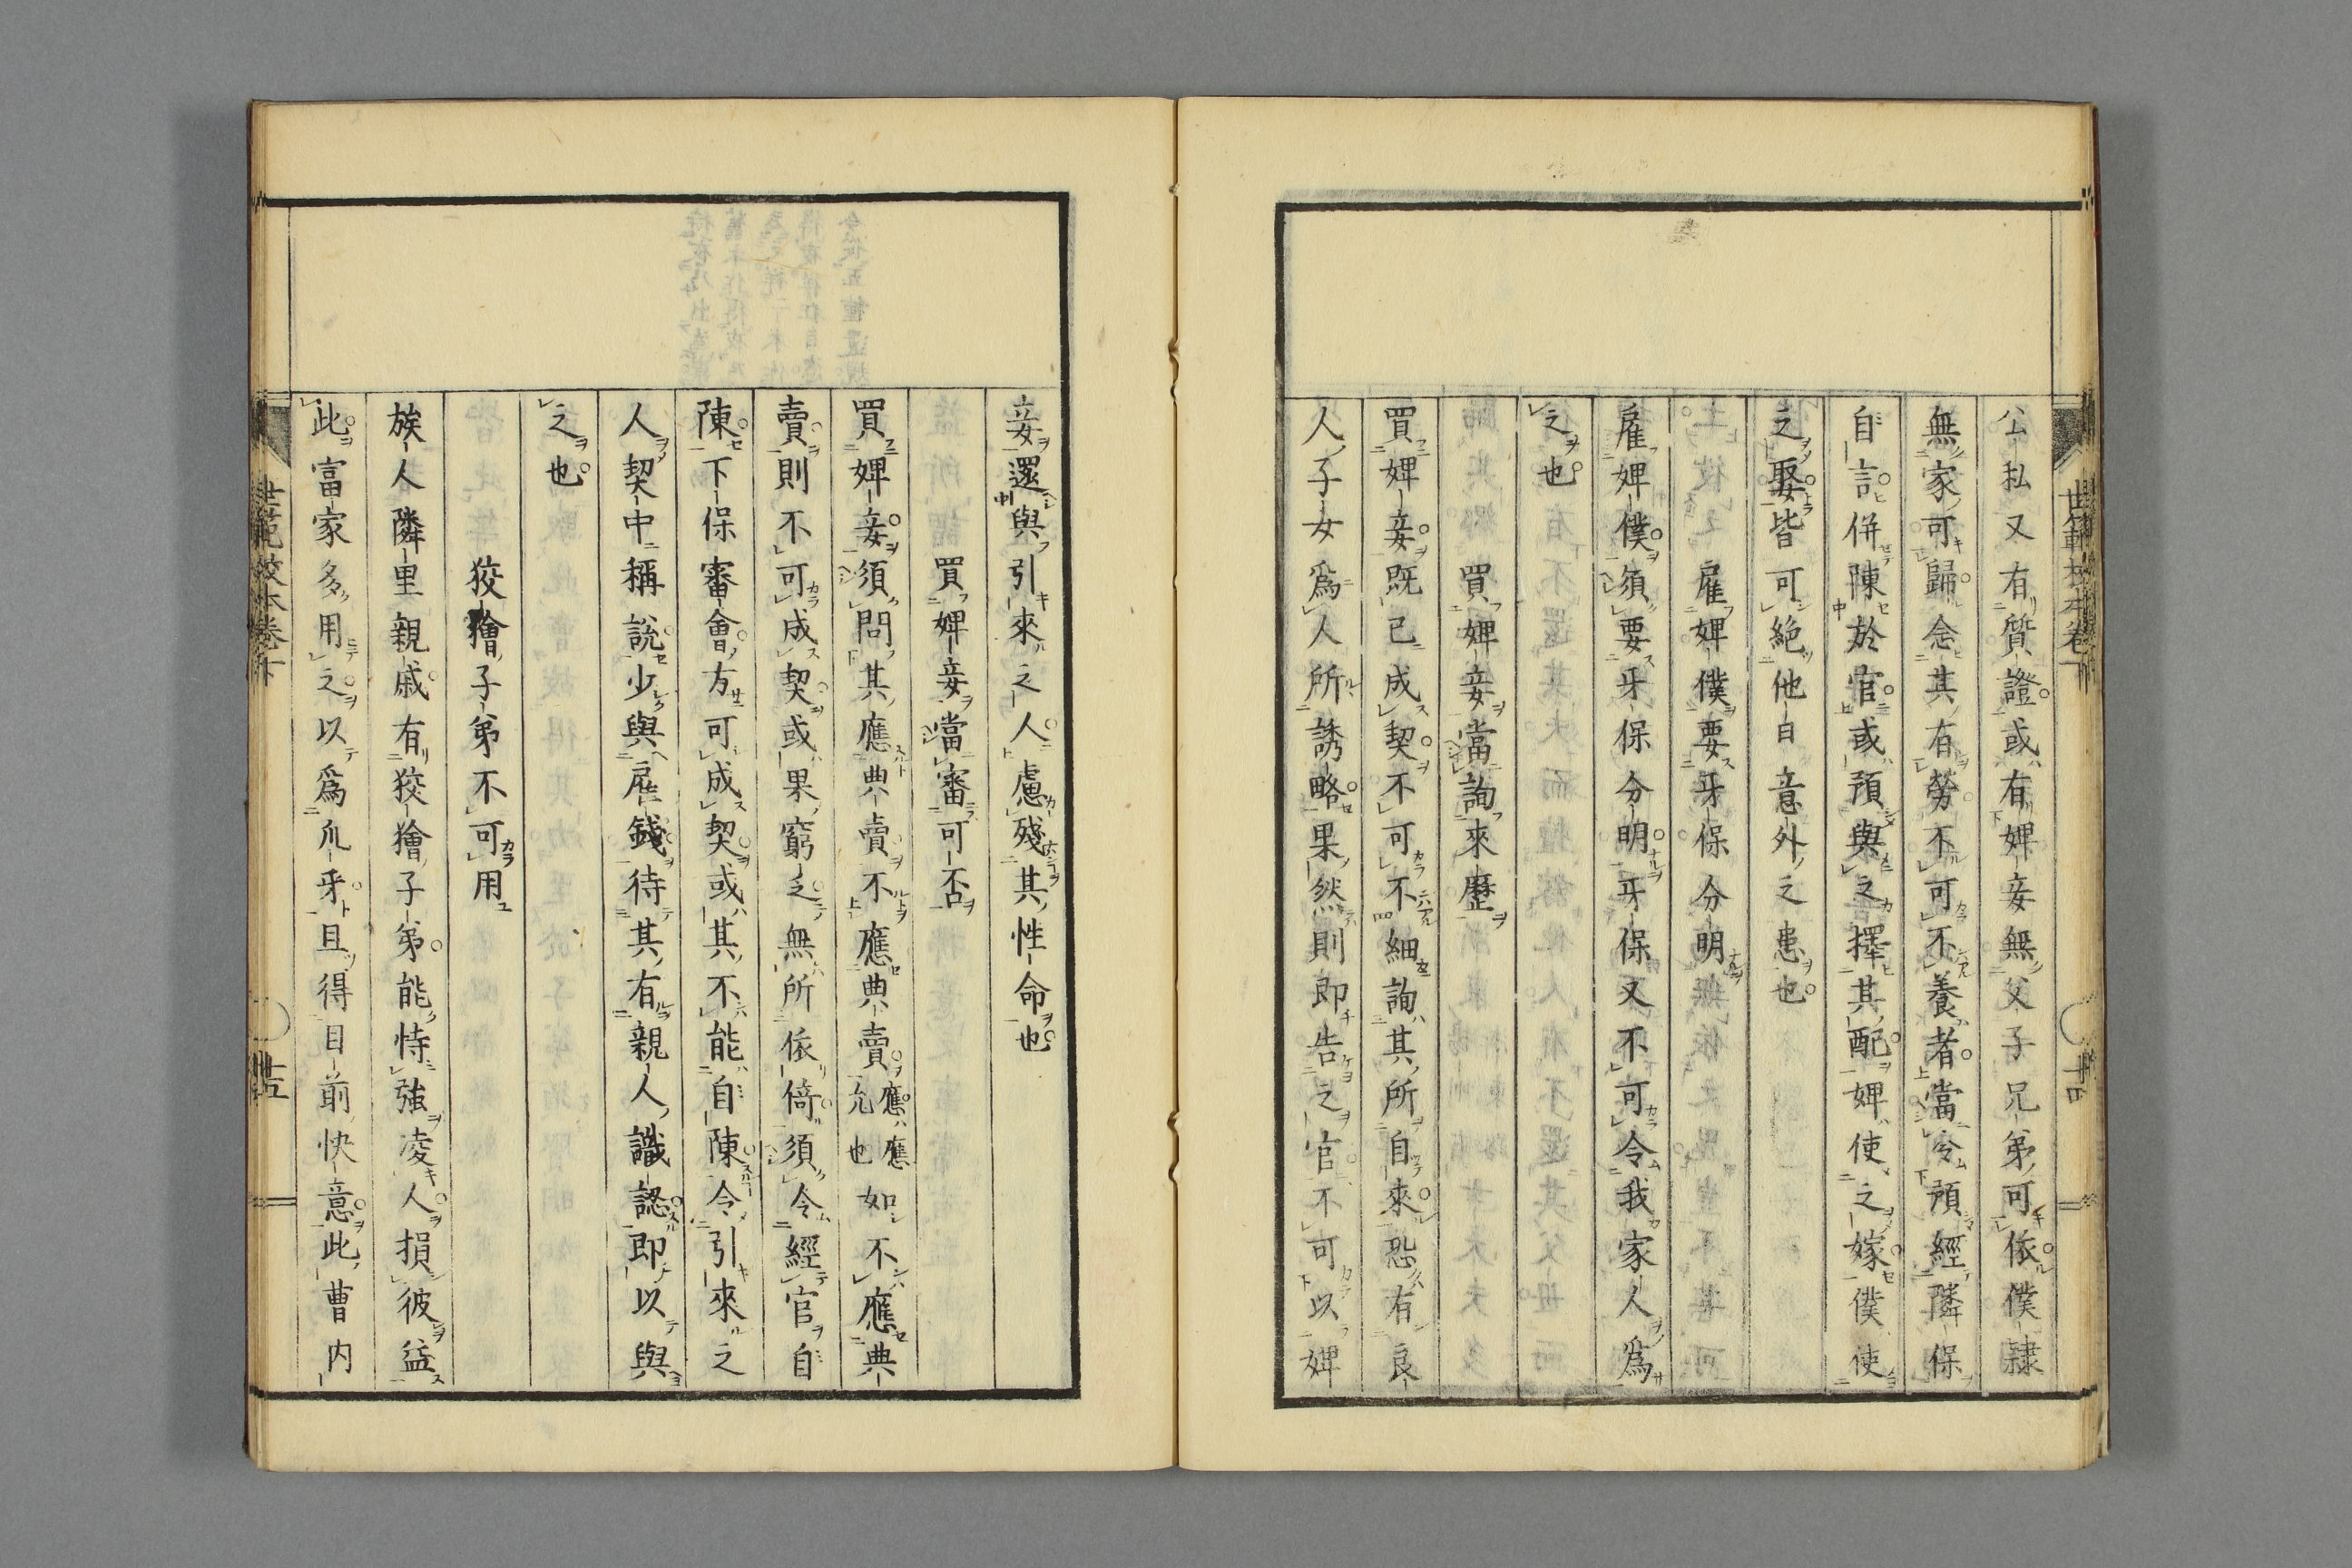 公私又有質證或有婢妾無父子兄弟可依僕隷
無家可歸念其有勞不可不養者當令預經隣保
自言併陳於官或預與之擇其配婢使之嫁僕使
之娶皆可絶他日意外之患也
雇婢僕要牙保分明
雇婢僕須要牙保分明牙保又不可令我家人爲
之也
買婢妾當詢來歷
買婢妾既已成契不可不細詢其所自來恐有良
人子女爲人所誘略果然則即告之官不可以婢
世範校本卷下
十四
妾還與引來之人慮殘其性命也
買婢妾當審可否
買婢妾須問其應典賣不應典賣應應允也如不應典
賣則不可成契或果窮乏無所依倚須令經官自
陳下保審會方可成契或其不能自陳令引來之
人契中稱說少與雇錢待其有親人識認即以與
之也
狡獪子弟不可用
族人隣里親戚有狡獪子弟能恃強凌人損彼益
此富家多用之以爲爪牙且得目前快意此曹内
世範校本卷下
十五